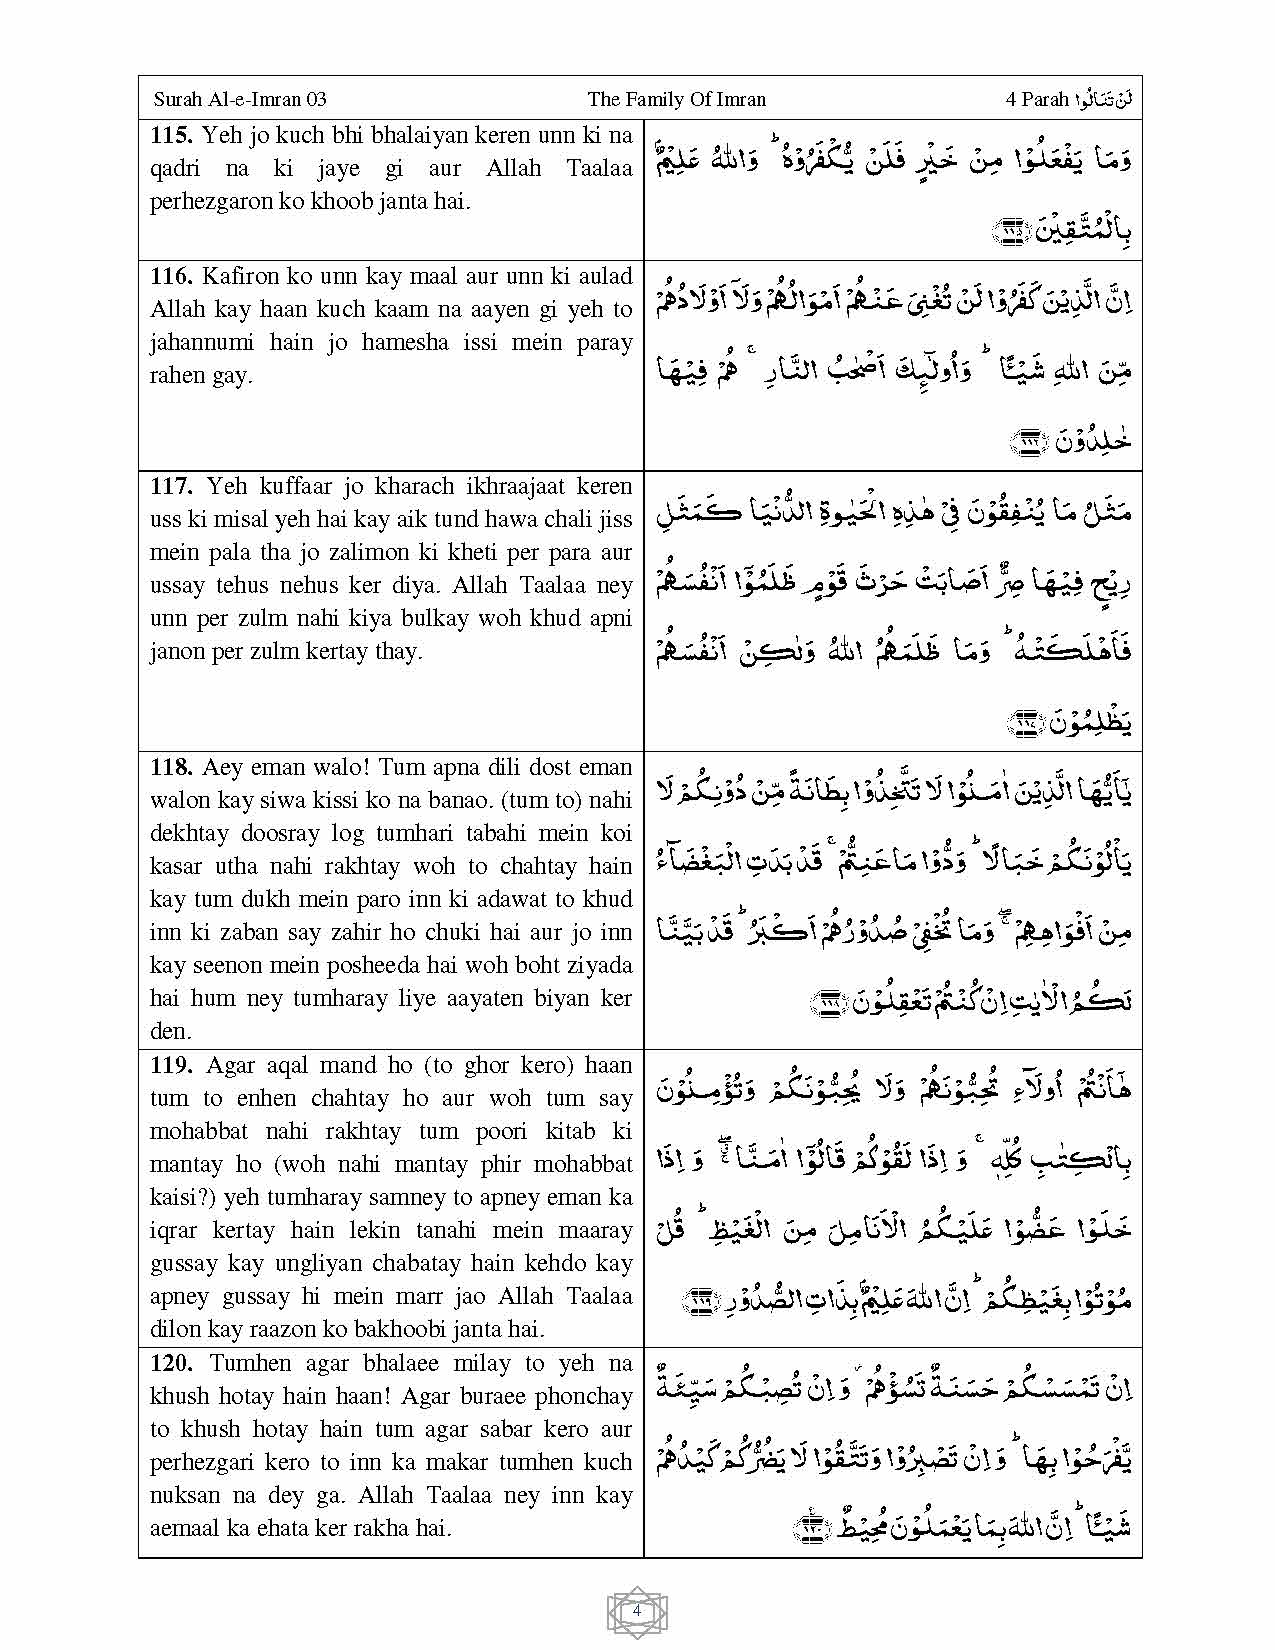 Surah Al-e-Imran 03 The Family Of Imran 4 Parah لَنْ تَنَالُوا
115. Yeh jo kuch bhi bhalaiyan keren unn ki na
qadri na ki jaye gi aur Allah Taalaa
perhezgaron ko khoob janta hai.
وَمَا يَفْعَلُوْا مِنْ خَيْرٍ فَلَنْ يُّكْفَرُوْهُ ؕ وَاللّٰهُ عَلِيْمٌۢ
بِالْمُتَّقِيْنَ ﴿۱۱۵﴾
116. Kafiron ko unn kay maal aur unn ki aulad
Allah kay haan kuch kaam na aayen gi yeh to
jahannumi hain jo hamesha issi mein paray
rahen gay.
اِنَّ الَّذِيْنَ كَفَرُوْا لَنْ تُغْنِىَ عَنْهُمْ اَمْوَالُهُمْ وَلَاۤ اَوْلَادُهُمْ
مِّنَ اللّٰهِ شَيْــًٔا ؕ وَاُولٰٓٮِٕكَ اَصْحٰبُ النَّارِ ۚ هُمْ فِيْهَا
خٰلِدُوْنَ ﴿۱۱۶﴾
117. Yeh kuffaar jo kharach ikhraajaat keren
uss ki misal yeh hai kay aik tund hawa chali jiss
mein pala tha jo zalimon ki kheti per para aur
ussay tehus nehus ker diya. Allah Taalaa ney
unn per zulm nahi kiya bulkay woh khud apni
janon per zulm kertay thay.
مَثَلُ مَا يُنْفِقُوْنَ فِىْ هٰذِهِ الْحَيٰوةِ الدُّنْيَا كَمَثَلِ
رِيْحٍ فِيْهَا صِرٌّ اَصَابَتْ حَرْثَ قَوْمٍ ظَلَمُوْۤا اَنْفُسَهُمْ
فَاَهْلَكَتْهُ ؕ وَمَا ظَلَمَهُمُ اللّٰهُ وَلٰكِنْ اَنْفُسَهُمْ
يَظْلِمُوْنَ ﴿۱۱۷﴾
118. Aey eman walo! Tum apna dili dost eman
walon kay siwa kissi ko na banao. (tum to) nahi
dekhtay doosray log tumhari tabahi mein koi
kasar utha nahi rakhtay woh to chahtay hain
kay tum dukh mein paro inn ki adawat to khud
inn ki zaban say zahir ho chuki hai aur jo inn
kay seenon mein posheeda hai woh boht ziyada
hai hum ney tumharay liye aayaten biyan ker
den.
يٰۤاَيُّهَا الَّذِيْنَ اٰمَنُوْا لَا تَتَّخِذُوْا بِطَانَةً مِّنْ دُوْنِكُمْ لَا
يَاْلُوْنَكُمْ خَبَالًا ؕ وَدُّوْا مَا عَنِتُّمْ ۚ قَدْ بَدَتِ الْبَغْضَآءُ
مِنْ اَفْوَاهِهِمْ ۖۚ وَمَا تُخْفِىْ صُدُوْرُهُمْ اَكْبَرُ ؕ قَدْ بَيَّنَّا
لَكُمُ الْاٰيٰتِ اِنْ كُنْتُمْ تَعْقِلُوْنَ ﴿۱۱۸﴾
119. Agar aqal mand ho (to ghor kero) haan
tum to enhen chahtay ho aur woh tum say
mohabbat nahi rakhtay tum poori kitab ki
mantay ho (woh nahi mantay phir mohabbat
kaisi?) yeh tumharay samney to apney eman ka
iqrar kertay hain lekin tanahi mein maaray
gussay kay ungliyan chabatay hain kehdo kay
apney gussay hi mein marr jao Allah Taalaa
dilon kay raazon ko bakhoobi janta hai.
هٰۤاَنْتُمْ اُولَآءِ تُحِبُّوْنَهُمْ وَلَا يُحِبُّوْنَكُمْ وَتُؤْمِنُوْنَ
بِالْكِتٰبِ كُلِّهٖ ۚ وَ اِذَا لَقُوْكُمْ قَالُوْۤا اٰمَنَّا ۖۚ وَ اِذَا
خَلَوْا عَضُّوْا عَلَيْكُمُ الْاَنَامِلَ مِنَ الْغَيْظِ ؕ قُلْ
مُوْتُوْا بِغَيْظِكُمْ ؕ اِنَّ اللّٰهَ عَلِيْمٌۢ بِذَاتِ الصُّدُوْرِ ﴿۱۱۹﴾
120. Tumhen agar bhalaee milay to yeh na
khush hotay hain haan! Agar buraee phonchay
to khush hotay hain tum agar sabar kero aur
perhezgari kero to inn ka makar tumhen kuch
nuksan na dey ga. Allah Taalaa ney inn kay
aemaal ka ehata ker rakha hai.
اِنْ تَمْسَسْكُمْ حَسَنَةٌ تَسُؤْهُمْ ؗ وَ اِنْ تُصِبْكُمْ سَيِّئَةٌ
يَّفْرَحُوْا بِهَا ؕ وَ اِنْ تَصْبِرُوْا وَتَتَّقُوْا لَا يَضُرُّكُمْ كَيْدُهُمْ
شَيْــًٔا ؕ اِنَّ اللّٰهَ بِمَا يَعْمَلُوْنَ مُحِيْطٌ ﴿۱۲۰﴾
4